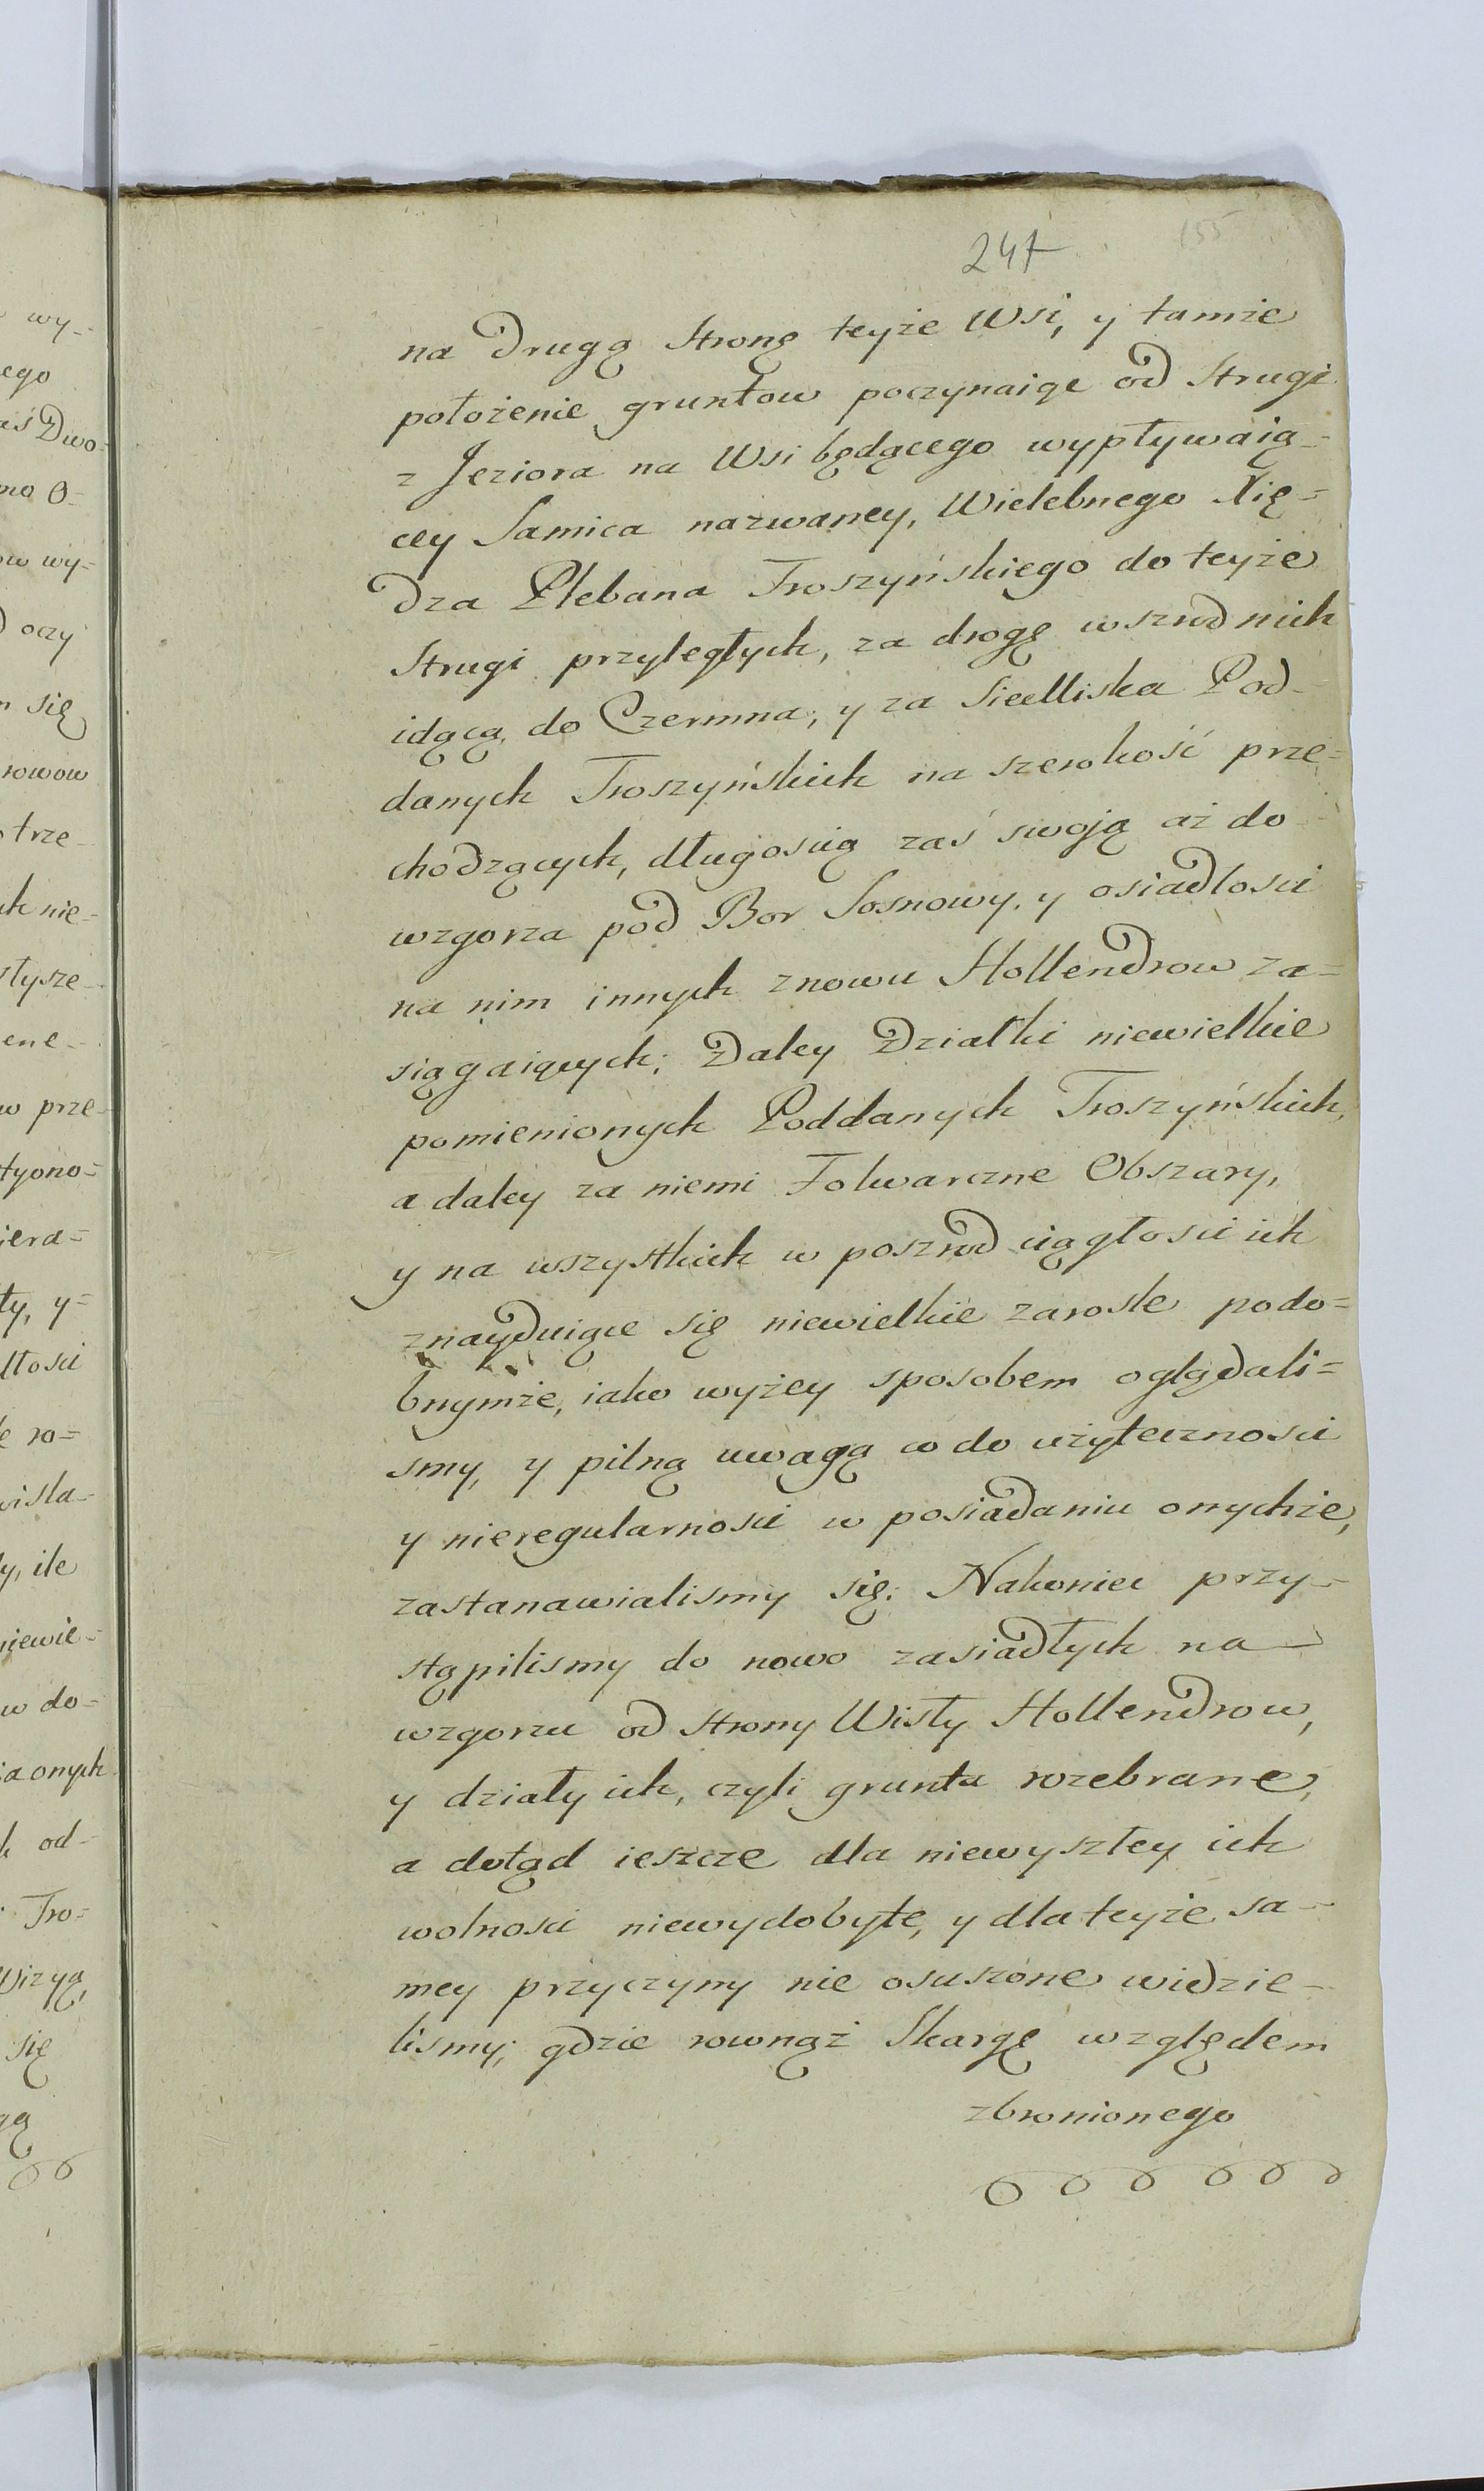 247 155
na drugą stronę teyże Wsi, y tamże
położenie gruntow poczynaiąc od Strugi
z Jeziora na Wsi będącego wypływaią-
cey Samica nazwaney, Wielebnego Xię=
dza Plebana Troszyńskiego do teyże
Strugi przyległych, za drogę wszrod nich
idącą do Czermna, y za Siedliska Pod-
danych Troszyńskich na szerokość prze=
chodzących, długoscią zaś swoją aż do
wzgorza pod Bor Sosnowy, y osiadłosci
na nim innych znowu Hollendrow za=
siągaiących; Daley Działki niewielkie
pomienionych Poddanych Troszyńskich,
a daley za niemi Folwarczne Obszary,
y na wszystkich w poszrod ciągłosci ich
znayduiące się niewielkie zarosle podo=
bnymże, iako wyżey sposobem oglądali=
smy, y pilną uwagą co do użytecznosci
y nieregularnosci w posiadaniu onychże,
zastanawialismy się. Nakoniec przy-
stąpilismy do nowo zasiadłych na
wzgorzu od strony Wisły Hollendrow,
y działy ich, czyli grunta rozebrane,
a dotąd ieszcze dla niewyszłey ich
wolnosci niewydobyte, y dla teyże sa-
mey przyczyny nie osuszone widzie-
lismy; gdzie rownąż Skargę względem
zbronionego
wy-
ego
aś Dwo-
mo O-
ow wy-
oczy
się
rowow
trze-
ch nie-
słysze-
ene-
w prze-
tyono=
iera=
ły, y=
łłosci
ro=
wisla-
y, ile
niewie-
w do=
ia onych
od-
Tro=
Wizyą
się